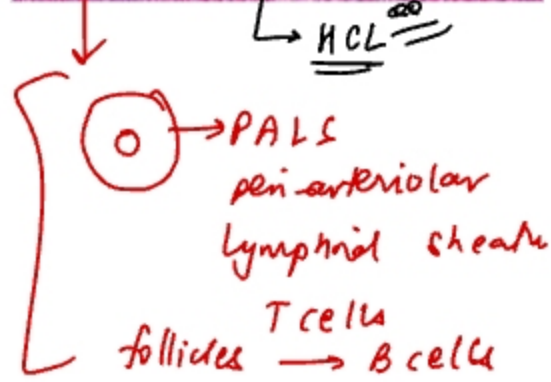 HCL
PALS
peri-arteriolar
lymphoid sheath
T cells
follicles → B cells